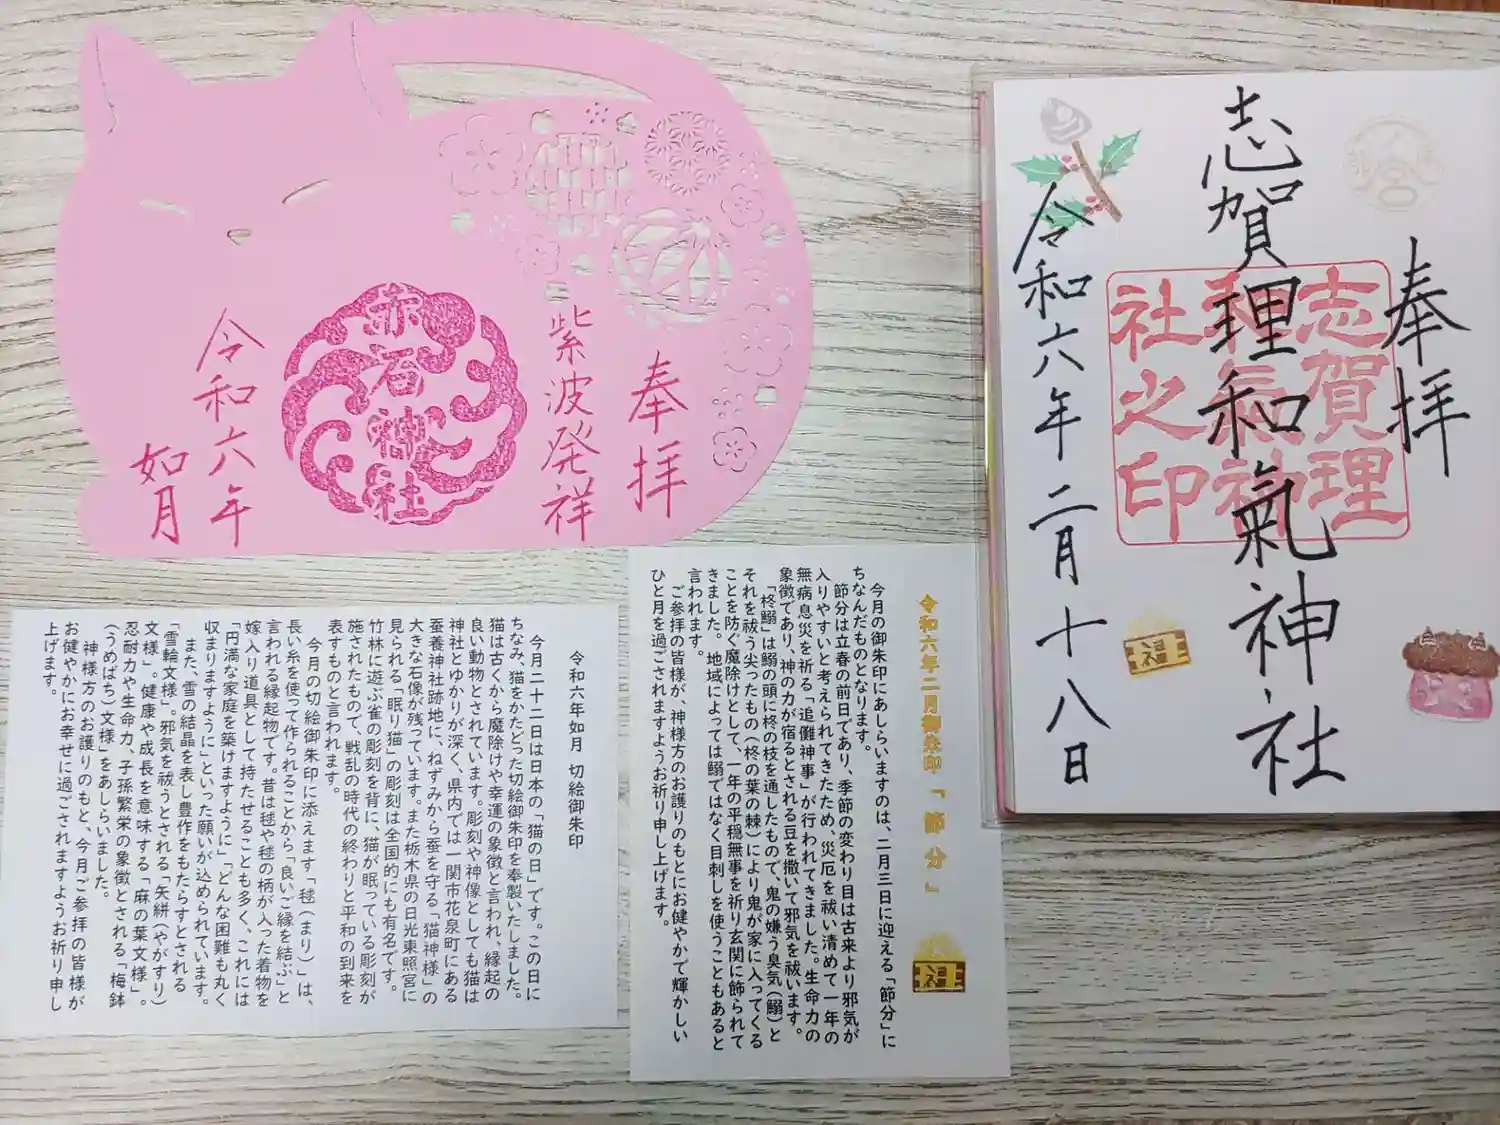 奉拝
紫波発祥
赤石神社
令和六年
如月
奉拝
志賀理和氣神社
志賀理
和氣神
社之印
令和六年二月十八日
一宮
福
令和六年二月御朱印「節分」
福
今月の御朱印にあしらいますのは、二月三日に迎える「節分」に
ちなんだものとなります。
節分は立春の前日であり、季節の変わり目は古来より邪気が
入りやすいと考えられてきたため、災厄を祓い清めて一年の
無病息災を祈る「追儺神事」が行われてきました。生命力の
象徴であり、神の力が宿るとされる豆を撒いて邪気を祓います。
「柊鰯」は鰯の頭に柊の枝を通したもので、鬼の嫌う臭気(鰯)と
それを祓う尖ったもの(柊の葉の棘)により鬼が家に入ってくる
ことを防ぐ魔除けとして、一年の平穏無事を祈り玄関に飾られて
きました。地域によっては鰯ではなく目刺しを使うこともあると
言われます。
ご参拝の皆様が、神様方のお護りのもとにお健やかで輝かしい
ひと月を過ごされますようお祈り申し上げます。
令和六年如月 切絵御朱印
今月二十二日は日本の「猫の日」です。この日に
ちなみ、猫をかたどった切絵御朱印を奉製いたしました。
猫は古くから魔除けや幸運の象徴と言われ、縁起の
良い動物とされています。彫刻や神像としても猫は
神社とゆかりが深く、県内では一関市花泉町にある
蚕養神社跡地に、ねずみから蚕を守る「猫神様」の
大きな石像が残っています。また栃木県の日光東照宮に
見られる「眠り猫」の彫刻は全国的にも有名です。
竹林に遊ぶ雀の彫刻を背に、猫が眠っている彫刻が
施されたもので、戦乱の時代の終わりと平和の到来を
表すものと言われます。
今月の切絵御朱印に添えます「毬(まり)」は、
長い糸を使って作られることから「良いご縁を結ぶ」と
言われる縁起物です。昔は毬や毬の柄が入った着物を
嫁入り道具として持たせることも多く、これには
「円満な家庭を築けますように」「どんな困難も丸く
収まりますように」といった願いが込められています。
また、雪の結晶を表し豊作をもたらすとされる
「雪輪文様」。邪気を祓うとされる「矢絣(やがすり)
文様」。健康や成長を意味する「麻の葉文様」。
忍耐力や生命力、子孫繁栄の象徴とされる「梅鉢
(うめばち)文様」をあしらいました。
神様方のお護りのもと、今月ご参拝の皆様が
お健やかにお幸せに過ごされますようお祈り申し
上げます。